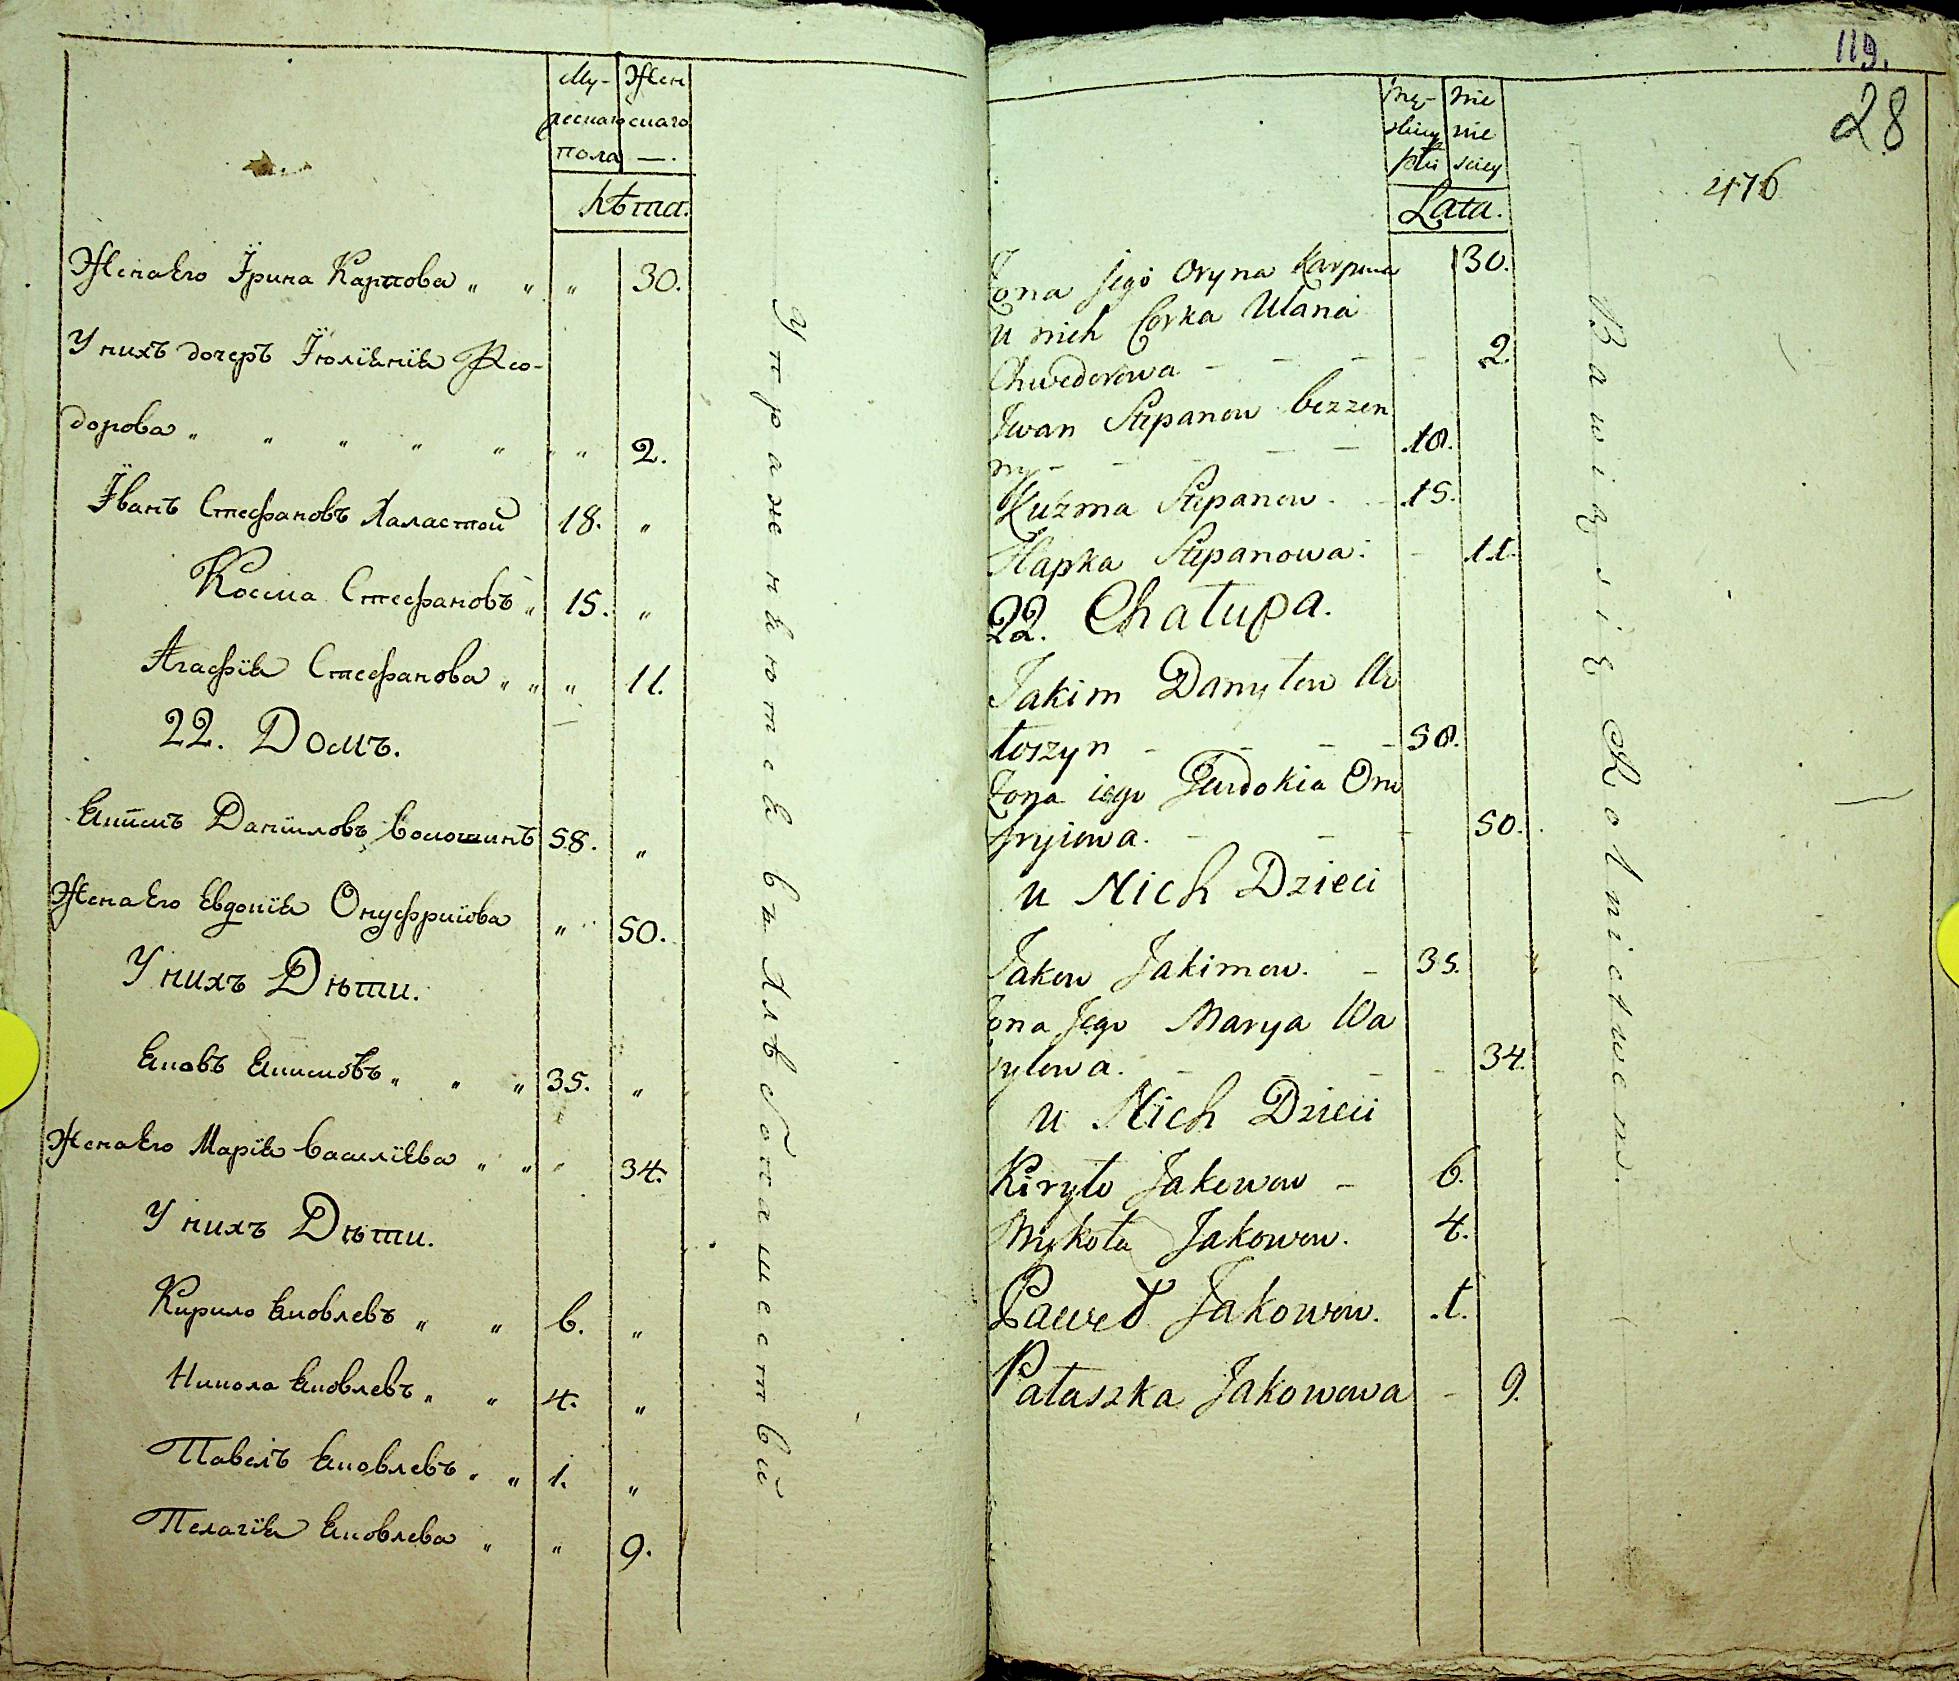 Му-
жескаго
пола
Жен
скаго
—.
Лѣта.
Жена Его Ірина Карпова „ „ „ 30.
У нихъ дочеръ Іюліянія Ѳео-
дорова „ „ „ „ „ „ „ 2.
Іванъ Стефановъ Халастой 18. „
Косма Стефановъ „ 15. „
Агафія Стефанова „ „ „ 11.
22. Домъ.
Якимъ Даниловъ Волошинъ 58. „
Жена Его Евдокія Онуфріова „ 50.
У нихъ Дѣти.
Яковъ Якимовъ „ „ „ 35. „
Жена Его Марія Василіева „ „ „ 34.
У нихъ Дѣти.
Кирило Яковлевъ „ „ 6. „
Никола Яковлевъ „ „ 4. „
Павелъ Яковлевъ „ „ 1. „
Пелагія Яковлева „ „ 9.
Упражняются въ Хлѣбопашествѣ
119.
28
476
męz-
kiey
płci
nie
wie
sciey
Lata.
Zona Jego Oryna Karpowa 30.
u nich Corka Ulana
Chwedorowa - - - - 2.
Iwan Stepanow bezzen
ny - - - - - 18.
Kuźma Stepanow. - 15.
Hapka Stepanowa. - 11.
22. Chałupa.
Jakim Danyłow Wo
łoszyn - - - - 58.
Zona iego Jewdokia Onu
fryiowa. - - - 50.
u Nich Dzieci
Jakow Jakimow. - 35.
Zona Jego Marya Wa
sylowa. - - - - 34.
u Nich Dzieci
Kiryło Jakowow - 6.
Mykoła Jakowow. 4.
Paweł Jakowow. 1.
Pałaszka Jakowowa - 9.
Bawią się Rolnictwem.